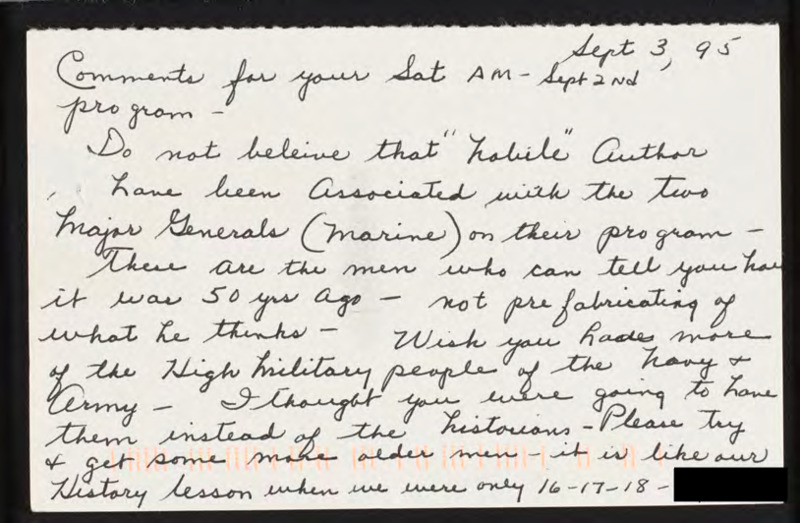 Sept 3, 95
Comments for your Sat AM - Sept 2nd
program -
Do not beleive that "Nobile" Author
have been Associated with the two
Major Generals (Marine) on their program -
These are the men who can tell you how
it was 50 yrs ago - not prefabricating of
what he thinks - Wish you had more
of the High Military people of the Navy &
Army - I thought you were going to have
them instead of the historians - Please try
& get some more older men it is like our
History lesson when we were only 16-17-18 -